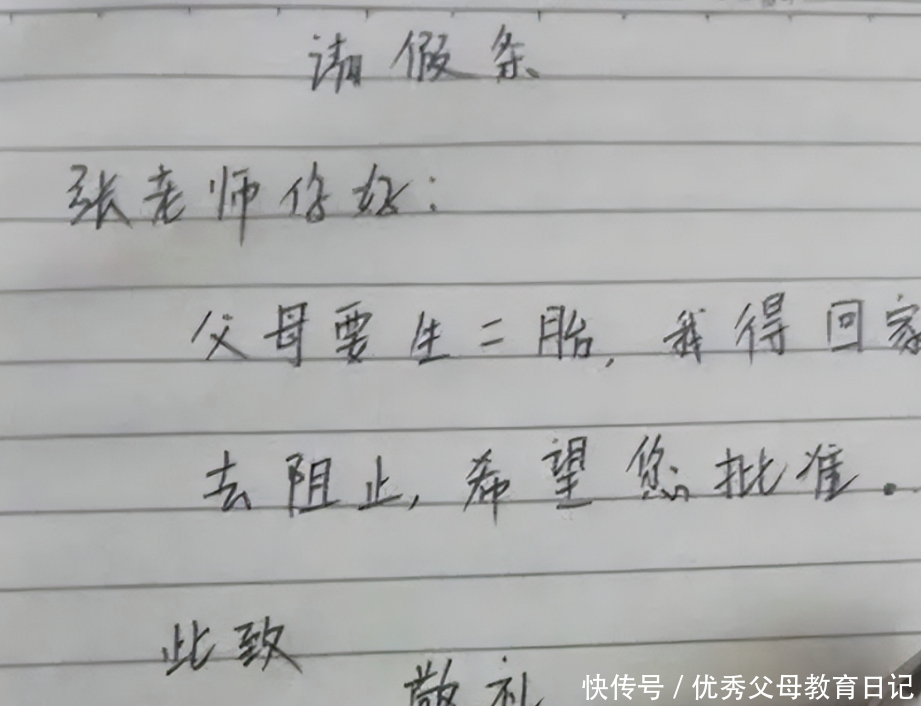 请假条
张老师你好:
父母要生二胎,我得回家
去阻止,希望您批准。
此致
敬礼
快传号/优秀父母教育日记